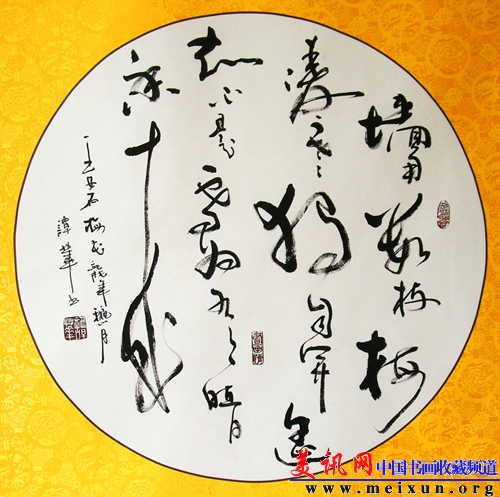 墙角数枝梅
凌寒独自開遥
知不是雪为有暗
香来
王安石梅花龍年穐月
譚華书
美讯网 中国书画收藏频道
www.meixun.org